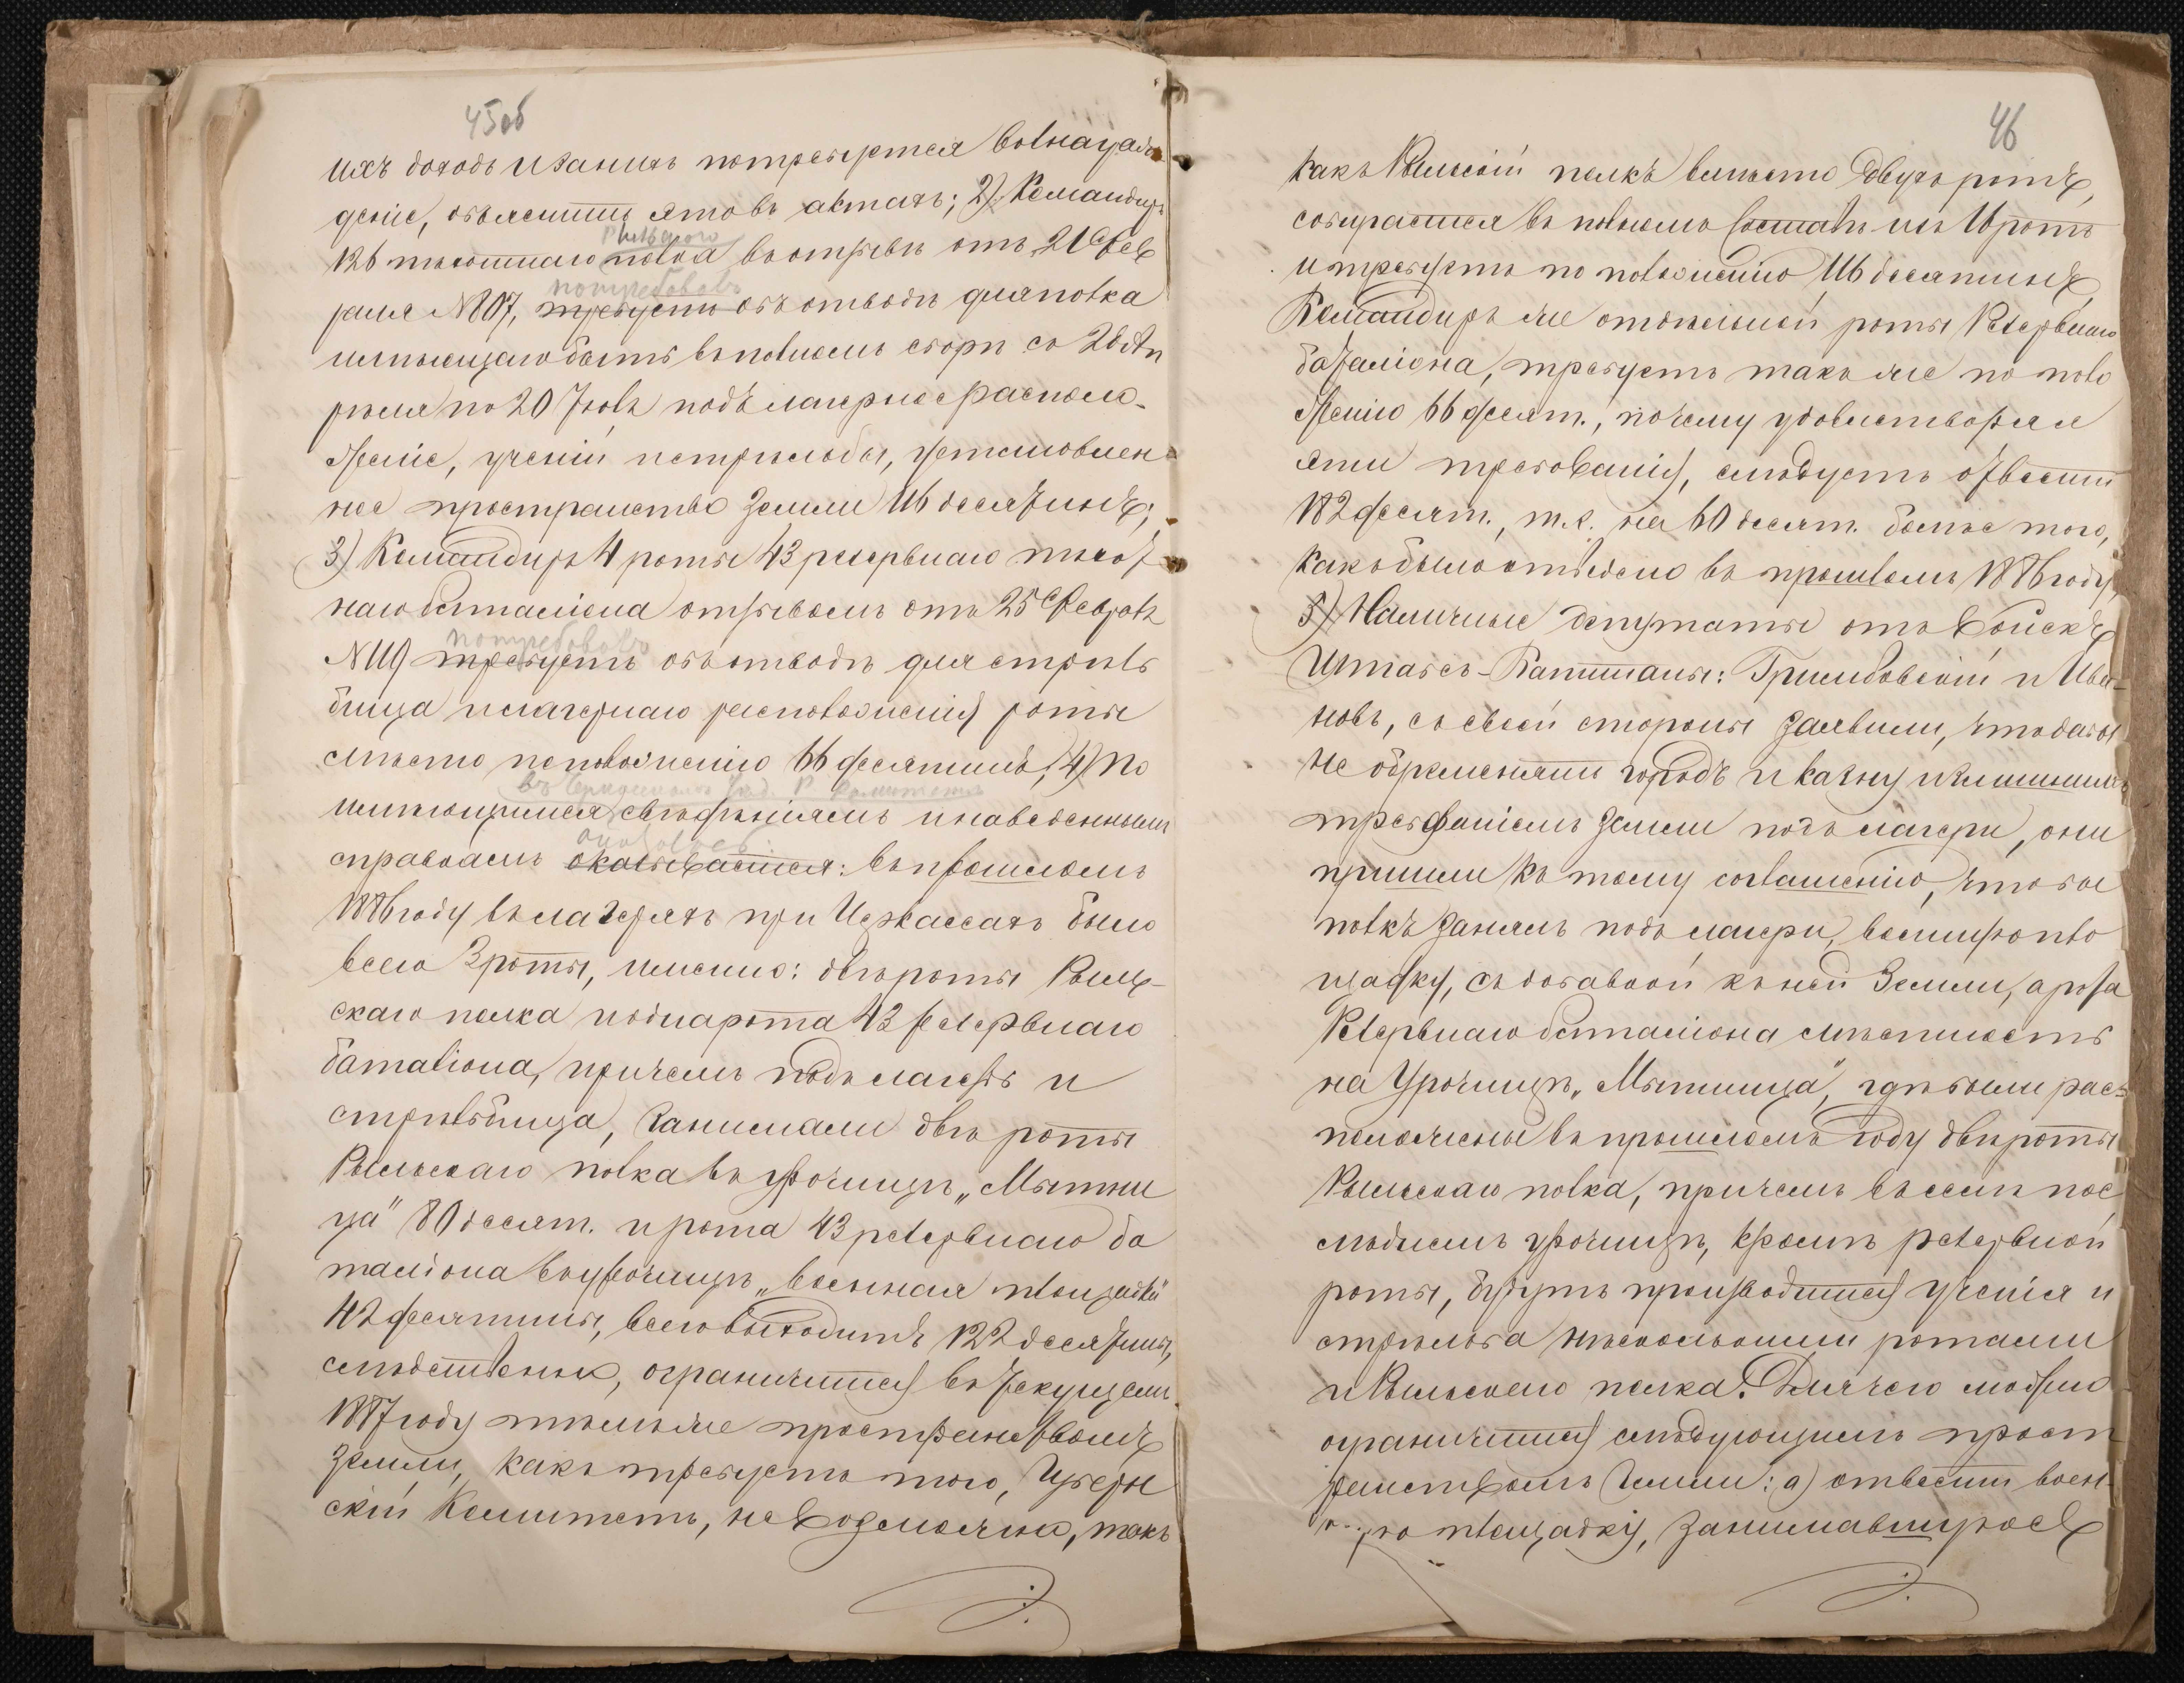 45об
ихъ доходъ и занихъ потребуется вознаграж
деніе, объяснить это въ актахъ; 2) Командиръ
Рыльскаго
126 пѣхотнаго полка въ отзывѣ отъ 21 Фев
потребовалъ
раля № 807, требуетъ объ отводѣ для полка
имѣющаго быть въ полномъ сборѣ съ 26 Ап
рѣля по 20 Іюля подъ лагерное располо-
женіе, ученій и стрѣльбы, установлен-
ное пространство земли 116 десятинъ;
3) Командиръ 4 роты 43 резервнаго пѣхот
наго баталіона отзывомъ отъ 25 Февраля
потребовалъ
№ 119 требуетъ объ отводѣ для стрѣль
бища и лагернаго расположенія роты
мѣсто по положенію 66 десятинъ; 4) По
въ Черкасскомъ комитетѣ
имѣющимся свѣдѣніямъ и наведеннымъ
оказалось:
справкамъ оказывается: въ прошломъ
1886 году въ лагеряхъ при Черкассахъ было
всего 3 роты, именно: двѣ роты Рыль-
скаго полка и одна рота 43 резервнаго
баталіона, причемъ подъ лагерь и
стрѣльбища, занимали двѣ роты
Рыльскаго полка въ урочищѣ „Мытни
ца" 80 десят. и рота 43 резервнаго ба
таліона въ урочищѣ „военная площадка"
42 десятины, всего выходитъ 122 десятины,
слѣдственно, ограничиться въ текущемъ
1887 году тѣмъ же пространствомъ
земли, какъ требуетъ того, Губерн
скій Комитетъ, невозможно, такъ
46
какъ Рыльскій полкъ вмѣсто двухъ ротъ,
собирается въ полномъ составѣ изъ 16 ротъ
и требуетъ по положенію 116 десятинъ,
Командиръ же отдѣльной роты Резервнаго
баталіона, требуетъ также по поло
женію 66 десят., почему удовлетворяя
эти требованія, слѣдуетъ отвести
182 десят., т.е. на 60 десят. болѣе того,
какъ было отведено въ прошломъ 1886 году
5) Наличные депутаты отъ войскъ
Штабсъ-Капитаны: Гриневскій и Ива-
новъ, съ своей стороны заявили, что дабы
не обременять городъ и казну излишнимъ
требованіемъ земли подъ лагери, они
пришли къ тому соглашенію, чтобы
полкъ занялъ подъ лагери, военную пло
щадку, съ добавкой къ ней земли, а рота
Резервнаго баталіона мѣстность
на урочищѣ „Мытница", гдѣ были рас-
положены въ прошломъ году двѣ роты
Рыльскаго полка, причемъ въ семъ пос
лѣднемъ урочищѣ, кромѣ резервной
роты, будутъ производиться ученія и
стрѣльба нѣсколькими ротами
и Рыльскаго полка. Для чего можно
ограничиться слѣдующимъ прост
ранствомъ земли: а) отвести воен-
ную площадку, занимавшуюся